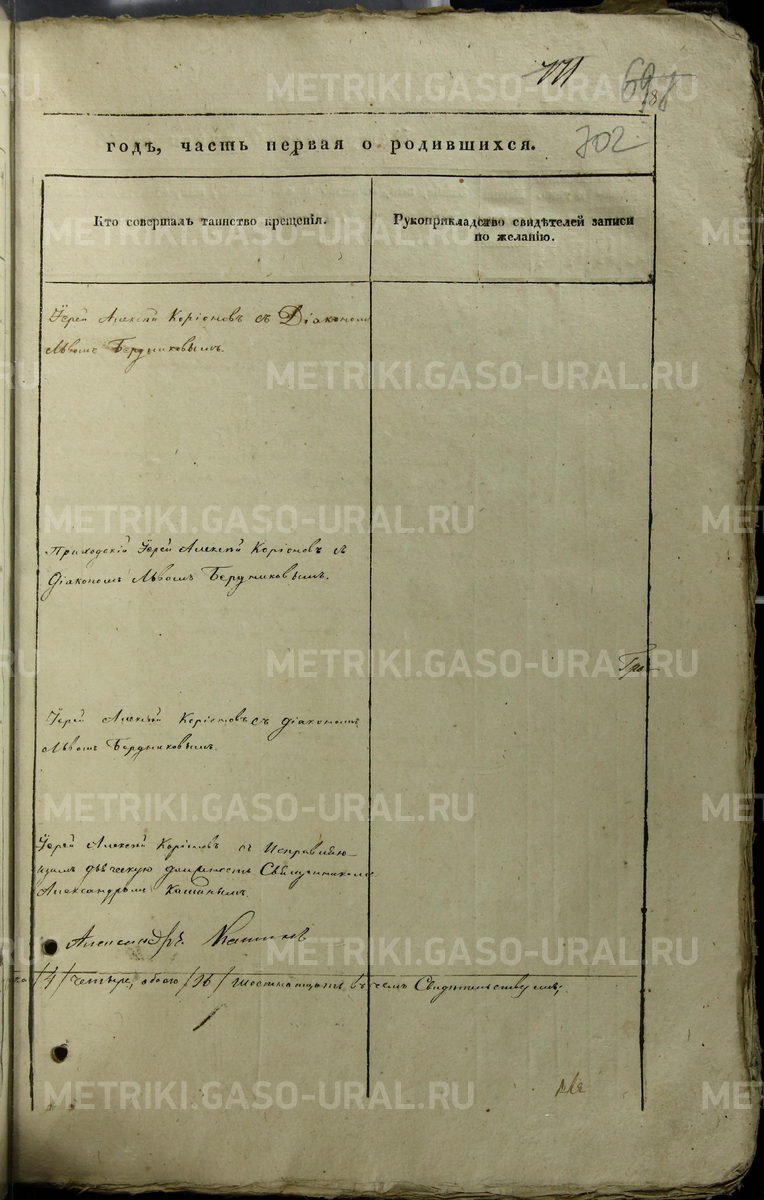 702
годъ, часть первая о родившихся.
Кто совершалъ таинство крещенія.
Рукоприкладство свидѣтелей записи
по желанію.
Іерей Алексій Коріоновъ съ Діакономъ
Львомъ Бердниковымъ.
Приходскій Іерей Алексій Коріоновъ съ
діакономъ Львомъ Бердниковымъ.
Іерей Алексій Коріоновъ съ діакономъ
Львомъ Бердниковымъ.
Іерей Алексій Коріоновъ съ Исправляю-
щимъ дьяческую должность Священникомъ
Александромъ
Александръ
/4/ четыре, обоего /16/ шестнатцать въ чемъ Свидѣтельствуемъ,
METRIKI.GASO-URAL.RU